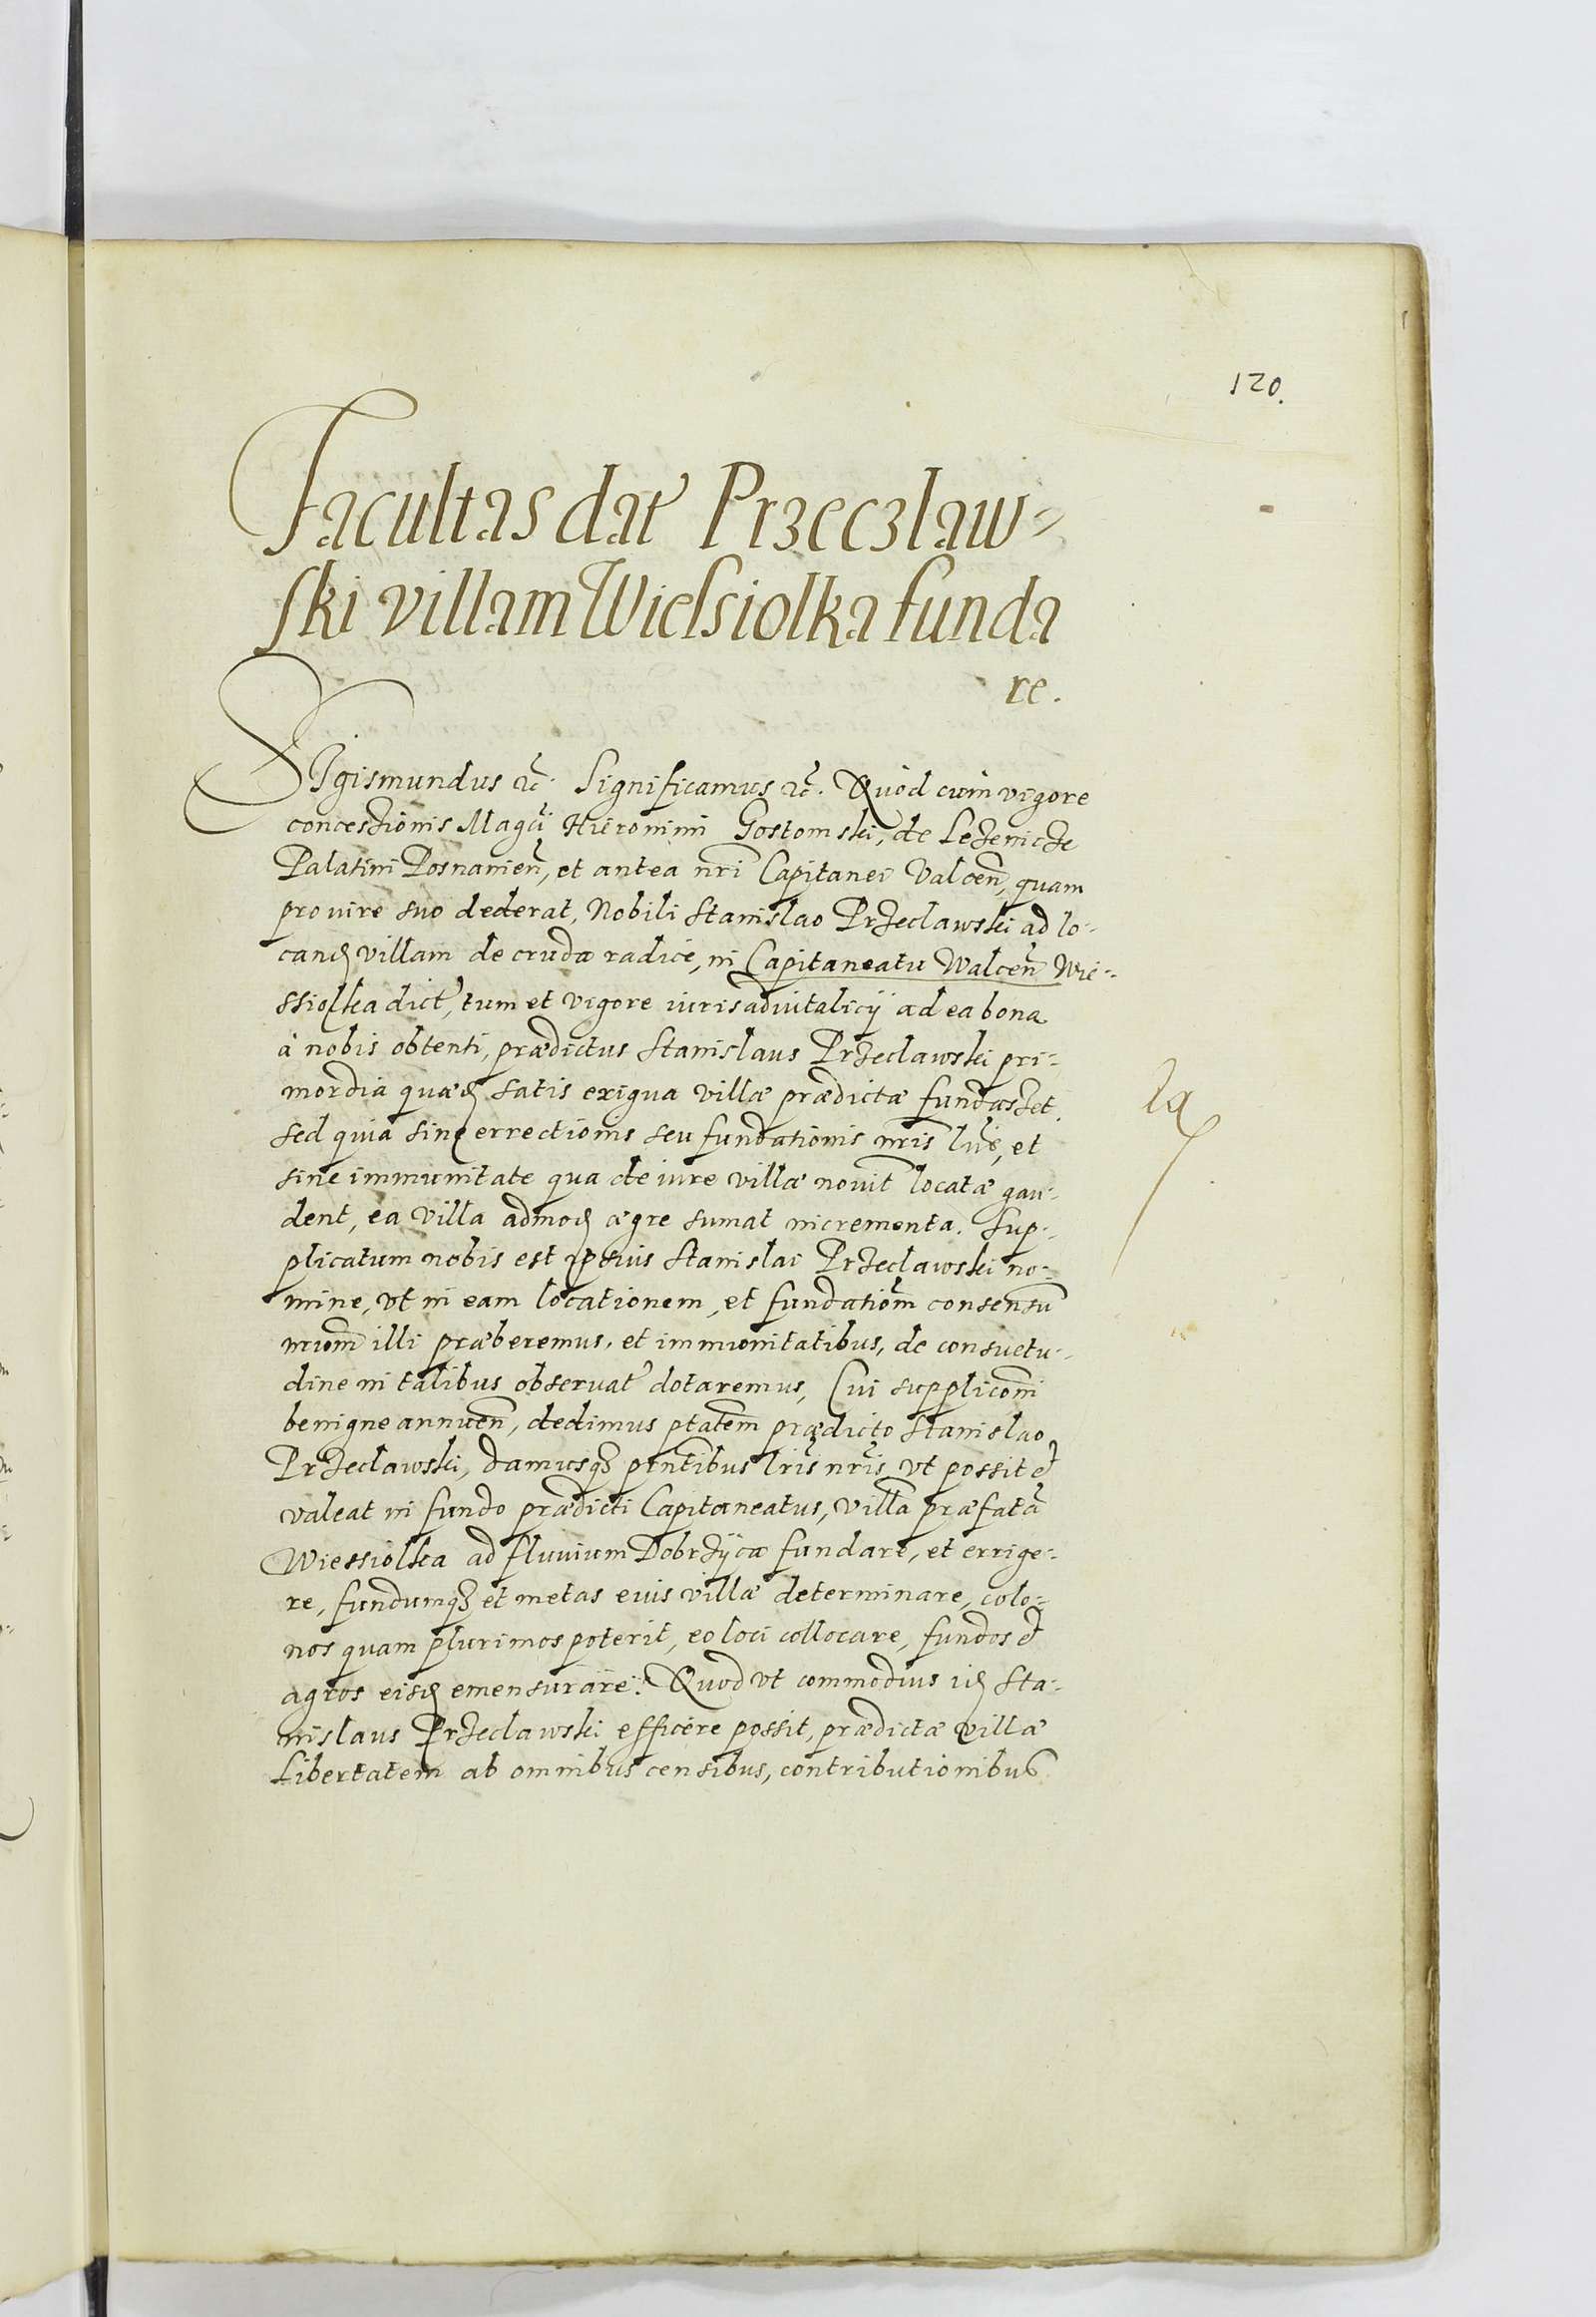 120.
Facultas dat Przeczlaw-
ski villam Wielsiolka funda
re.
Sigismundus etc. Significamus etc. Quòd cum vigore
concessionis Magci Hieronimi Gostomski, de Lezenicze
Palatini Posnanien, et antea nri Capitanei Valcen, quam
pro uire suo dederat, Nobili Stanislao Przeclawski ad lo-
cand villam de cruda radice, in Capitaneatu Walcen Wie-
ssiolka dict, tum et vigore iuris aduitalicij ad ea bona
à nobis obtenti, prædictus Stanislaus Przeclawski pri-
mordia quæd satis exigua villæ prædictæ fundasset
sed quia sine errectionis seu fundationis nris lris, et
sine immunitate qua de iure villæ nouit locatæ gau-
dent, ea villa admod ægre sumat incrementa. Sup-
plicatum nobis est ipsius Stanislai Przeclawski no-
mine, vt in eam locationem, et fundationm consensu
nrum illi præberemus, et immunitatibus, de consuetu-
dine in talibus obseruat dotaremus, Cui suppliconi
benigne annuen, dedimus ptatem prædicto Stanislao
Przeclawski, damusq pntibus lris nris vt possit et
valeat in fundo prædicti Capitaneatus, villa præfata
Wiessiolka ad fluuium Dobrzÿca fundare, et errige-
re, fundumq et metas eius villæ determinare, colo-
nos quam plurimos poterit, eo loci collocare, fundos et
agros eisd emensurare. Quod vt commodius id Sta-
nislaus Przeclawski efficere possit, prædictæ villæ
Libertatem ab omnibus censibus, contributionibus